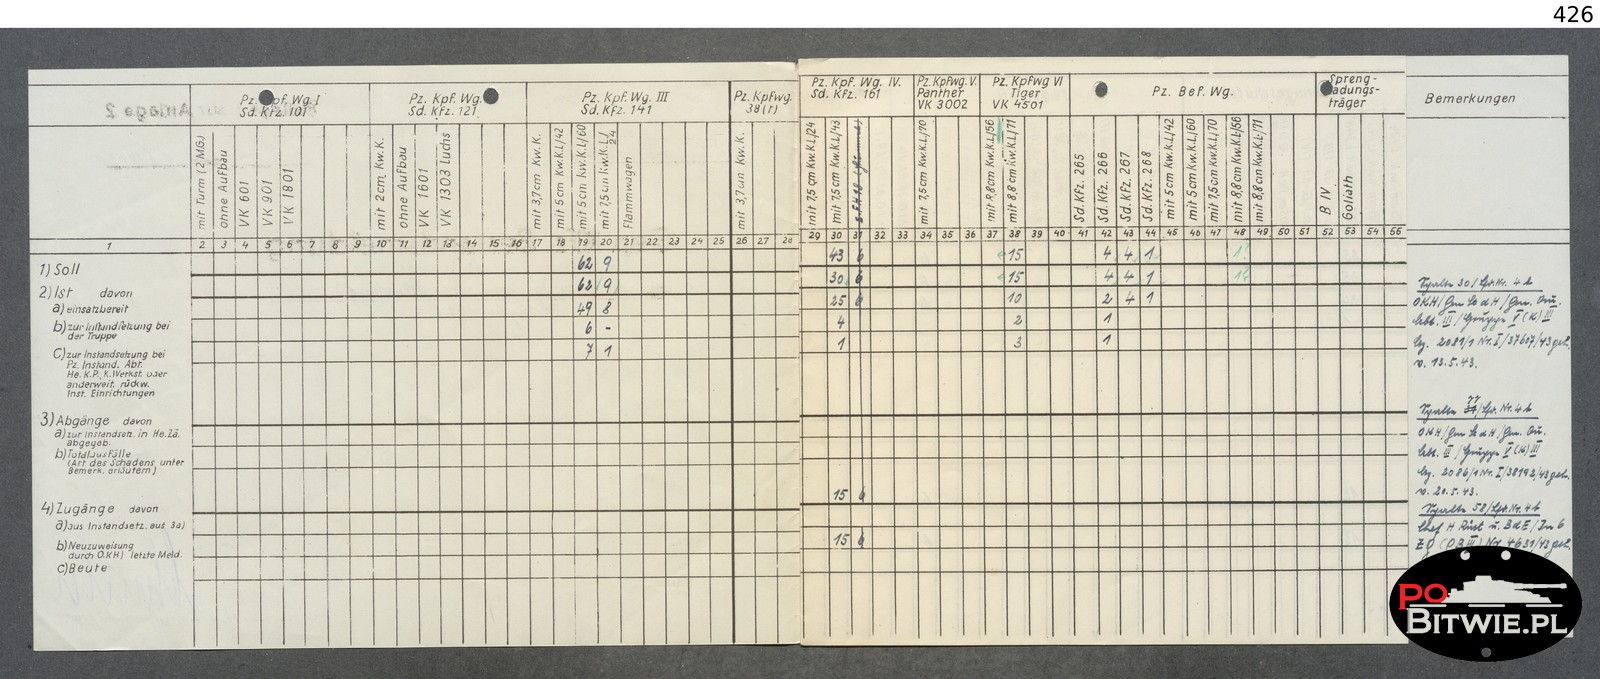 426
Pz. Kpf. Wg. I
Sd. Kfz. 101
Pz. Kpf. Wg.
Sd. Kfz. 121
Pz. Kpf. Wg. III
Sd. Kfz. 141
Pz. Kpfwg.
38(t)
Pz. Kpf. Wg. IV.
Sd. Kfz. 161
Pz. Kpfwg. V.
Panther
VK 3002
Pz. Kpfwg VI
Tiger
VK 4501
Pz. Bef. Wg.
Spreng-
ladungs-
träger
Bemerkungen
Anlage 2
mit Turm (2 M.G.)
ohne Aufbau
VK 601
VK 901
VK 1801
mit 2 cm, Kw.K.
ohne Aufbau
VK 1601
VK 1303 Luchs
mit 3,7 cm Kw.K.
mit 5 cm Kw.K.L/42
mit 5 cm Kw.K.L/60
mit 7,5 cm Kw.K.L/24
Flammwagen
mit 3,7 cm Kw.K.
mit 7,5 cm Kw.K.L/24
mit 7,5 cm Kw.K.L/43
mit 7,5 cm Kw.K.L/70
mit 8,8 cm Kw.K.L/56
mit 8,8 cm Kw.K.L/71
Sd. Kfz. 265
Sd. Kfz. 266
Sd. Kfz. 267
Sd. Kfz. 268
mit 5 cm Kw.K.L/42
mit 5 cm Kw.K.L/60
mit 7,5 cm Kw.K.L/70
mit 8,8 cm Kw.K.L/56
mit 8,8 cm Kw.K.L/71
B IV
Goliath
1 2 3 4 5 6 7 8 9 10 11 12 13 14 15 16 17 18 19 20 21 22 23 24 25 26 27 28 29 30 31 32 33 34 35 36 37 38 39 40 41 42 43 44 45 46 47 48 49 50 51 52 53 54 55
1) Soll 62 9 43 6 15 4 4 1
2) Ist davon 62 9 30 6 15 4 4 1
a) einsatzbereit 49 8 25 6 10 2 4 1
b) zur Instandsetzung bei 6 - 4 2 1
der Truppe
c) zur Instandsetzung bei 7 1 1 3 1
Pz. Instand. Abt.
He. K.P., K.Werkst. oder
anderweit. rückw.
Inst. Einrichtungen
3) Abgänge davon
a) zur Instandsetz. in He. Zä.
abgegeb.
b) Totalausfälle
(Art des Schadens unter
Bemerk. erläutern)
15 6
4) Zugänge davon
a) aus Instandsetz. aus 3a)
b) Neuzuweisung 15 6
durch O.KH) letzte Meld.
c) Beute
OKH/Gen St d H/Gen. Qu.
Abt. III/Gruppe V (K) III
v. 13.5.43.
OKH/Gen St d H/Gen. Qu.
Abt. III/Gruppe V (K) III
v. 20.5.43.
PO
BITWIE.PL